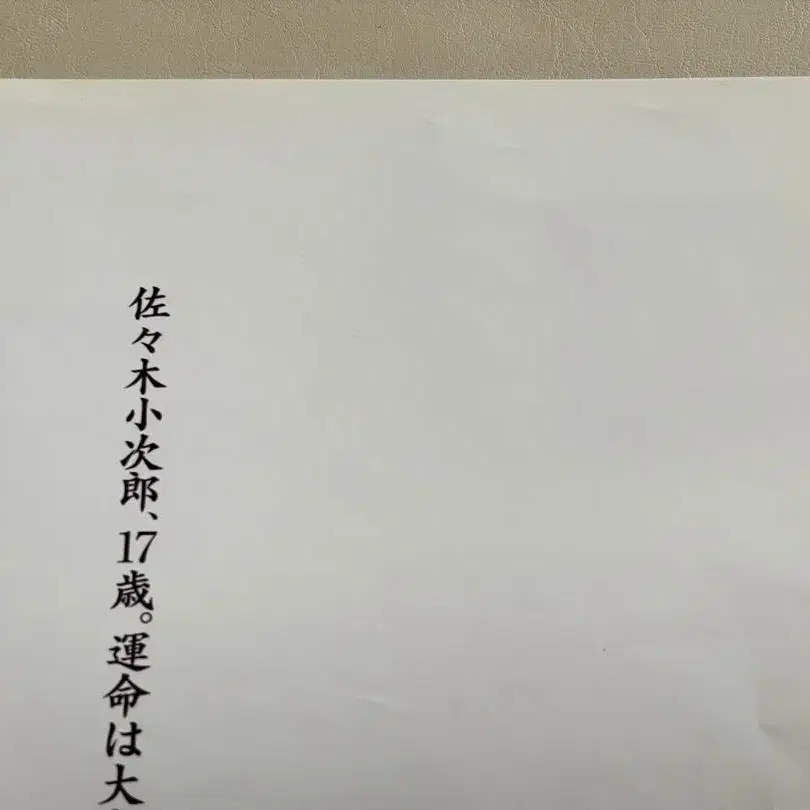 佐々木小次郎、17歳。運命は大